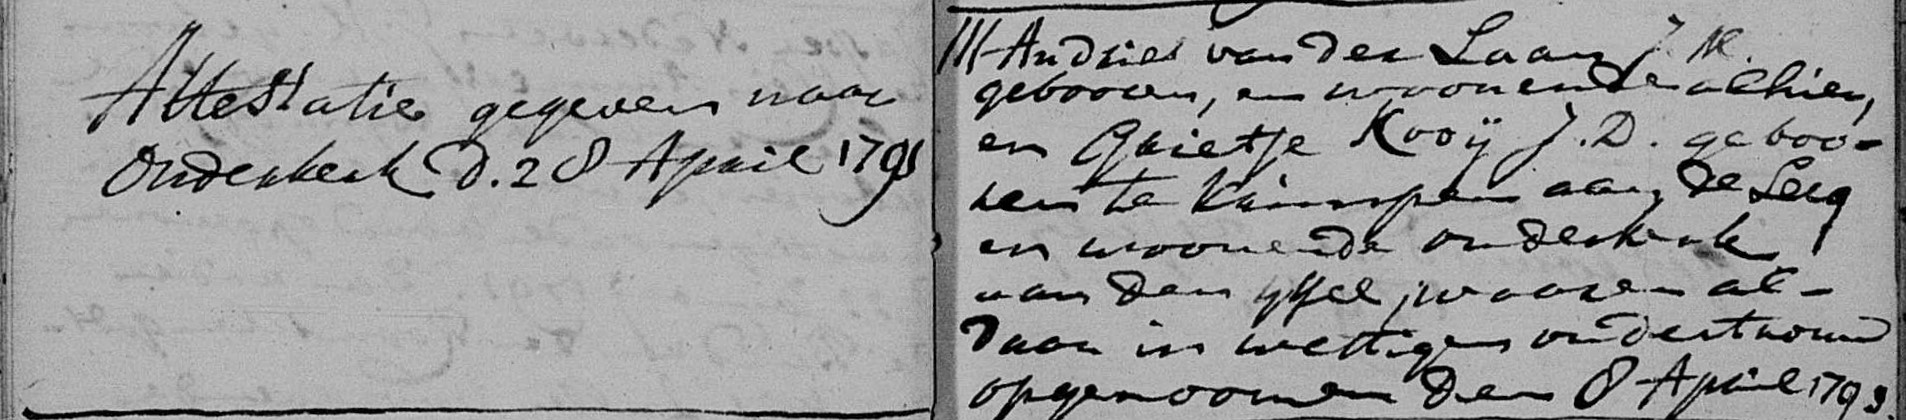 Attestatie gegeven naar
Ouderkerk d. 28 April 1793
Andries van der Laan J. M.
gebooren, en woonende alhier,
en Grietje Kooij J. D. geboo-
ren te Krimpen aan de Lecq
en woonende ouderkerk
aan den yssel, waaren al-
daar in wettigen ondertrouw
opgenoomen den 8 April 1793.